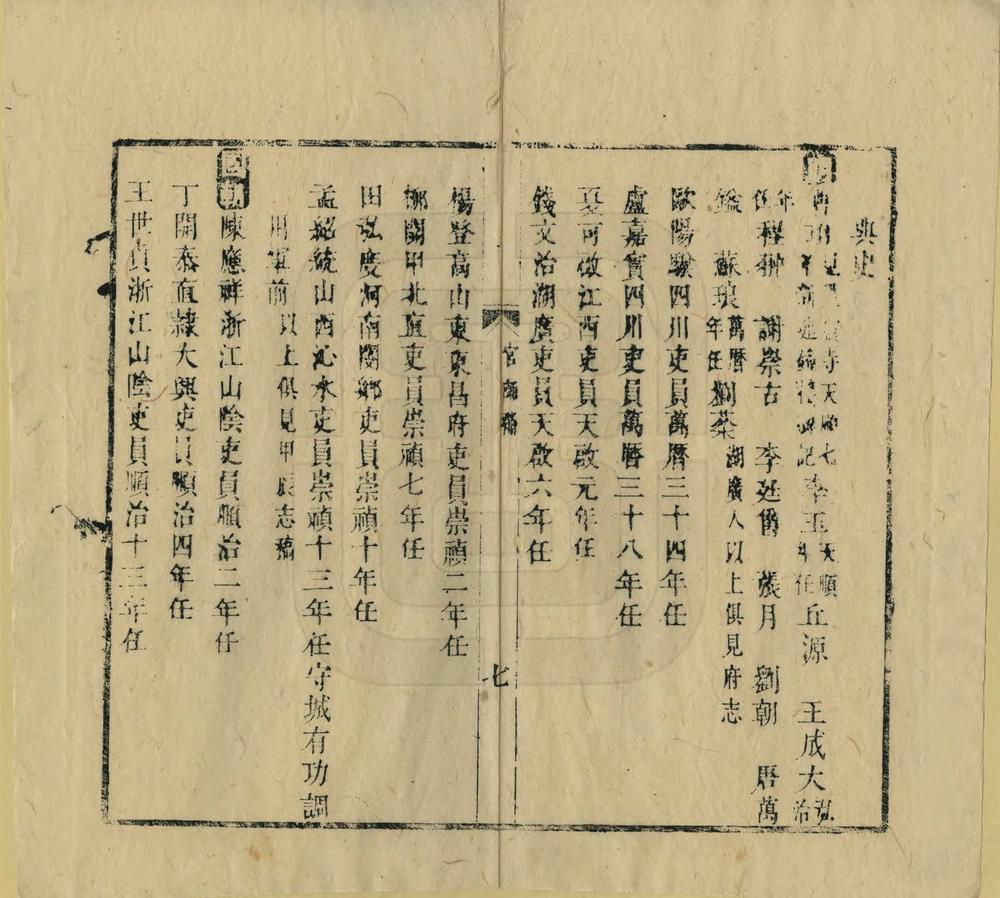 典史
寺天順七李玉天順年任丘源　王成大弘治
年任程翀　謝崇古　李廷儒　張月　劉朝　唐萬
鑑　蘇琅萬曆年任劉葵湖廣人以上俱見府志
歐陽駿四川吏員萬曆三十四年任
盧嘉賓四川吏員萬曆三十八年任
夏可啟江西吏員天啟元年任
錢文治湖廣吏員天啟六年任
官師
七
楊登高山東東昌府吏員崇禎二年任
郴國甲北直吏員崇禎七年任
田弘慶河南閿鄉吏員崇禎十年任
孟紹統山西沁水吏員崇禎十三年任守城有功調
用軍前以上俱見甲辰志稿
陳應祥浙江山陰吏員順治二年任
丁開泰直隸大興吏員順治四年任
王世貞浙江山陰吏員順治十三年任